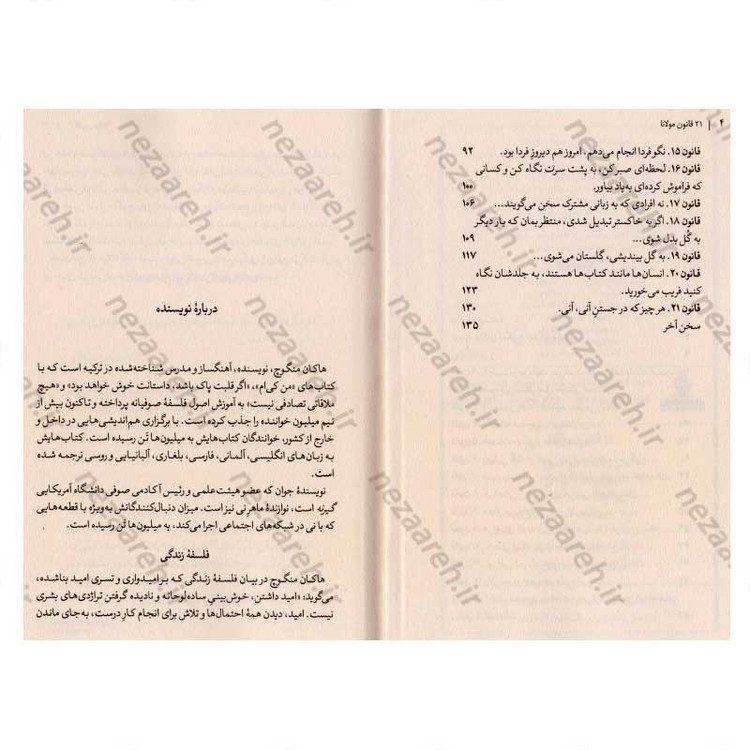 ۴ | ۲۱ قانون مولانا
قانون ۱۵. نگو فردا انجام می‌دهم، امروز هم دیروزِ فردا بود. ۹۲
قانون ۱۶. لحظه‌ای صبر کن، به پشت سرت نگاه کن و کسانی
که فراموش کرده‌ای به‌یاد بیاور. ۱۰۰
قانون ۱۷. نه افرادی که به زبانی مشترک سخن می‌گویند... ۱۰۶
قانون ۱۸. اگر به خاکستر تبدیل شدی، منتظر بمان که بار دیگر
به گُل بدل شوی... ۱۰۹
قانون ۱۹. به گل بیندیشی، گلستان می‌شوی... ۱۱۷
قانون ۲۰. انسان‌ها مانند کتاب‌ها هستند، به جلدشان نگاه
کنید فریب می‌خورید. ۱۲۳
قانون ۲۱. هر چیز که در جستنِ آنی، آنی. ۱۳۰
سخن آخر ۱۳۵
دربارهٔ نویسنده
هاکان منگوچ، نویسنده، آهنگساز و مدرس شناخته‌شده در ترکیه است که با
کتاب‌های «من کی‌ام»، «اگر قلبت پاک باشد، داستانت خوش خواهد بود» و «هیچ
ملاقاتی تصادفی نیست» به آموزش اصول فلسفهٔ صوفیانه پرداخته و تاکنون بیش از
نیم میلیون خواننده را جذب کرده است. با برگزاری هم‌اندیشی‌هایی در داخل و
خارج از کشور، خوانندگان کتاب‌هایش به میلیون‌ها تَن رسیده است. کتاب‌هایش
به زبان‌های انگلیسی، آلمانی، فارسی، بلغاری، آلبانیایی و روسی ترجمه شده
است.
نویسندهٔ جوان که عضو هیئت‌علمی و رئیس آکادمی صوفی دانشگاه آمریکایی
گیرنه است، نوازندهٔ ماهر نی نیز است. میزان دنبال‌کنندگانش به‌ویژه با قطعه‌هایی
که با نی در شبکه‌های اجتماعی اجرا می‌کند، به میلیون‌ها تَن رسیده است.
فلسفهٔ زندگی
هاکان منگوچ در بیان فلسفهٔ زندگی که بر امیدواری و تسری امید بنا شده،
می‌گوید: «امید داشتن، خوش‌بینیِ ساده‌لوحانه و نادیده گرفتن تراژدی‌های بشری
نیست. امید، دیدن همهٔ احتمال‌ها و تلاش برای انجام کارِ درست، به‌جای ماندن
nezaareh.ir
nezaareh.ir
nezaareh.ir
nezaareh.ir
nezaareh.ir
nezaareh.ir